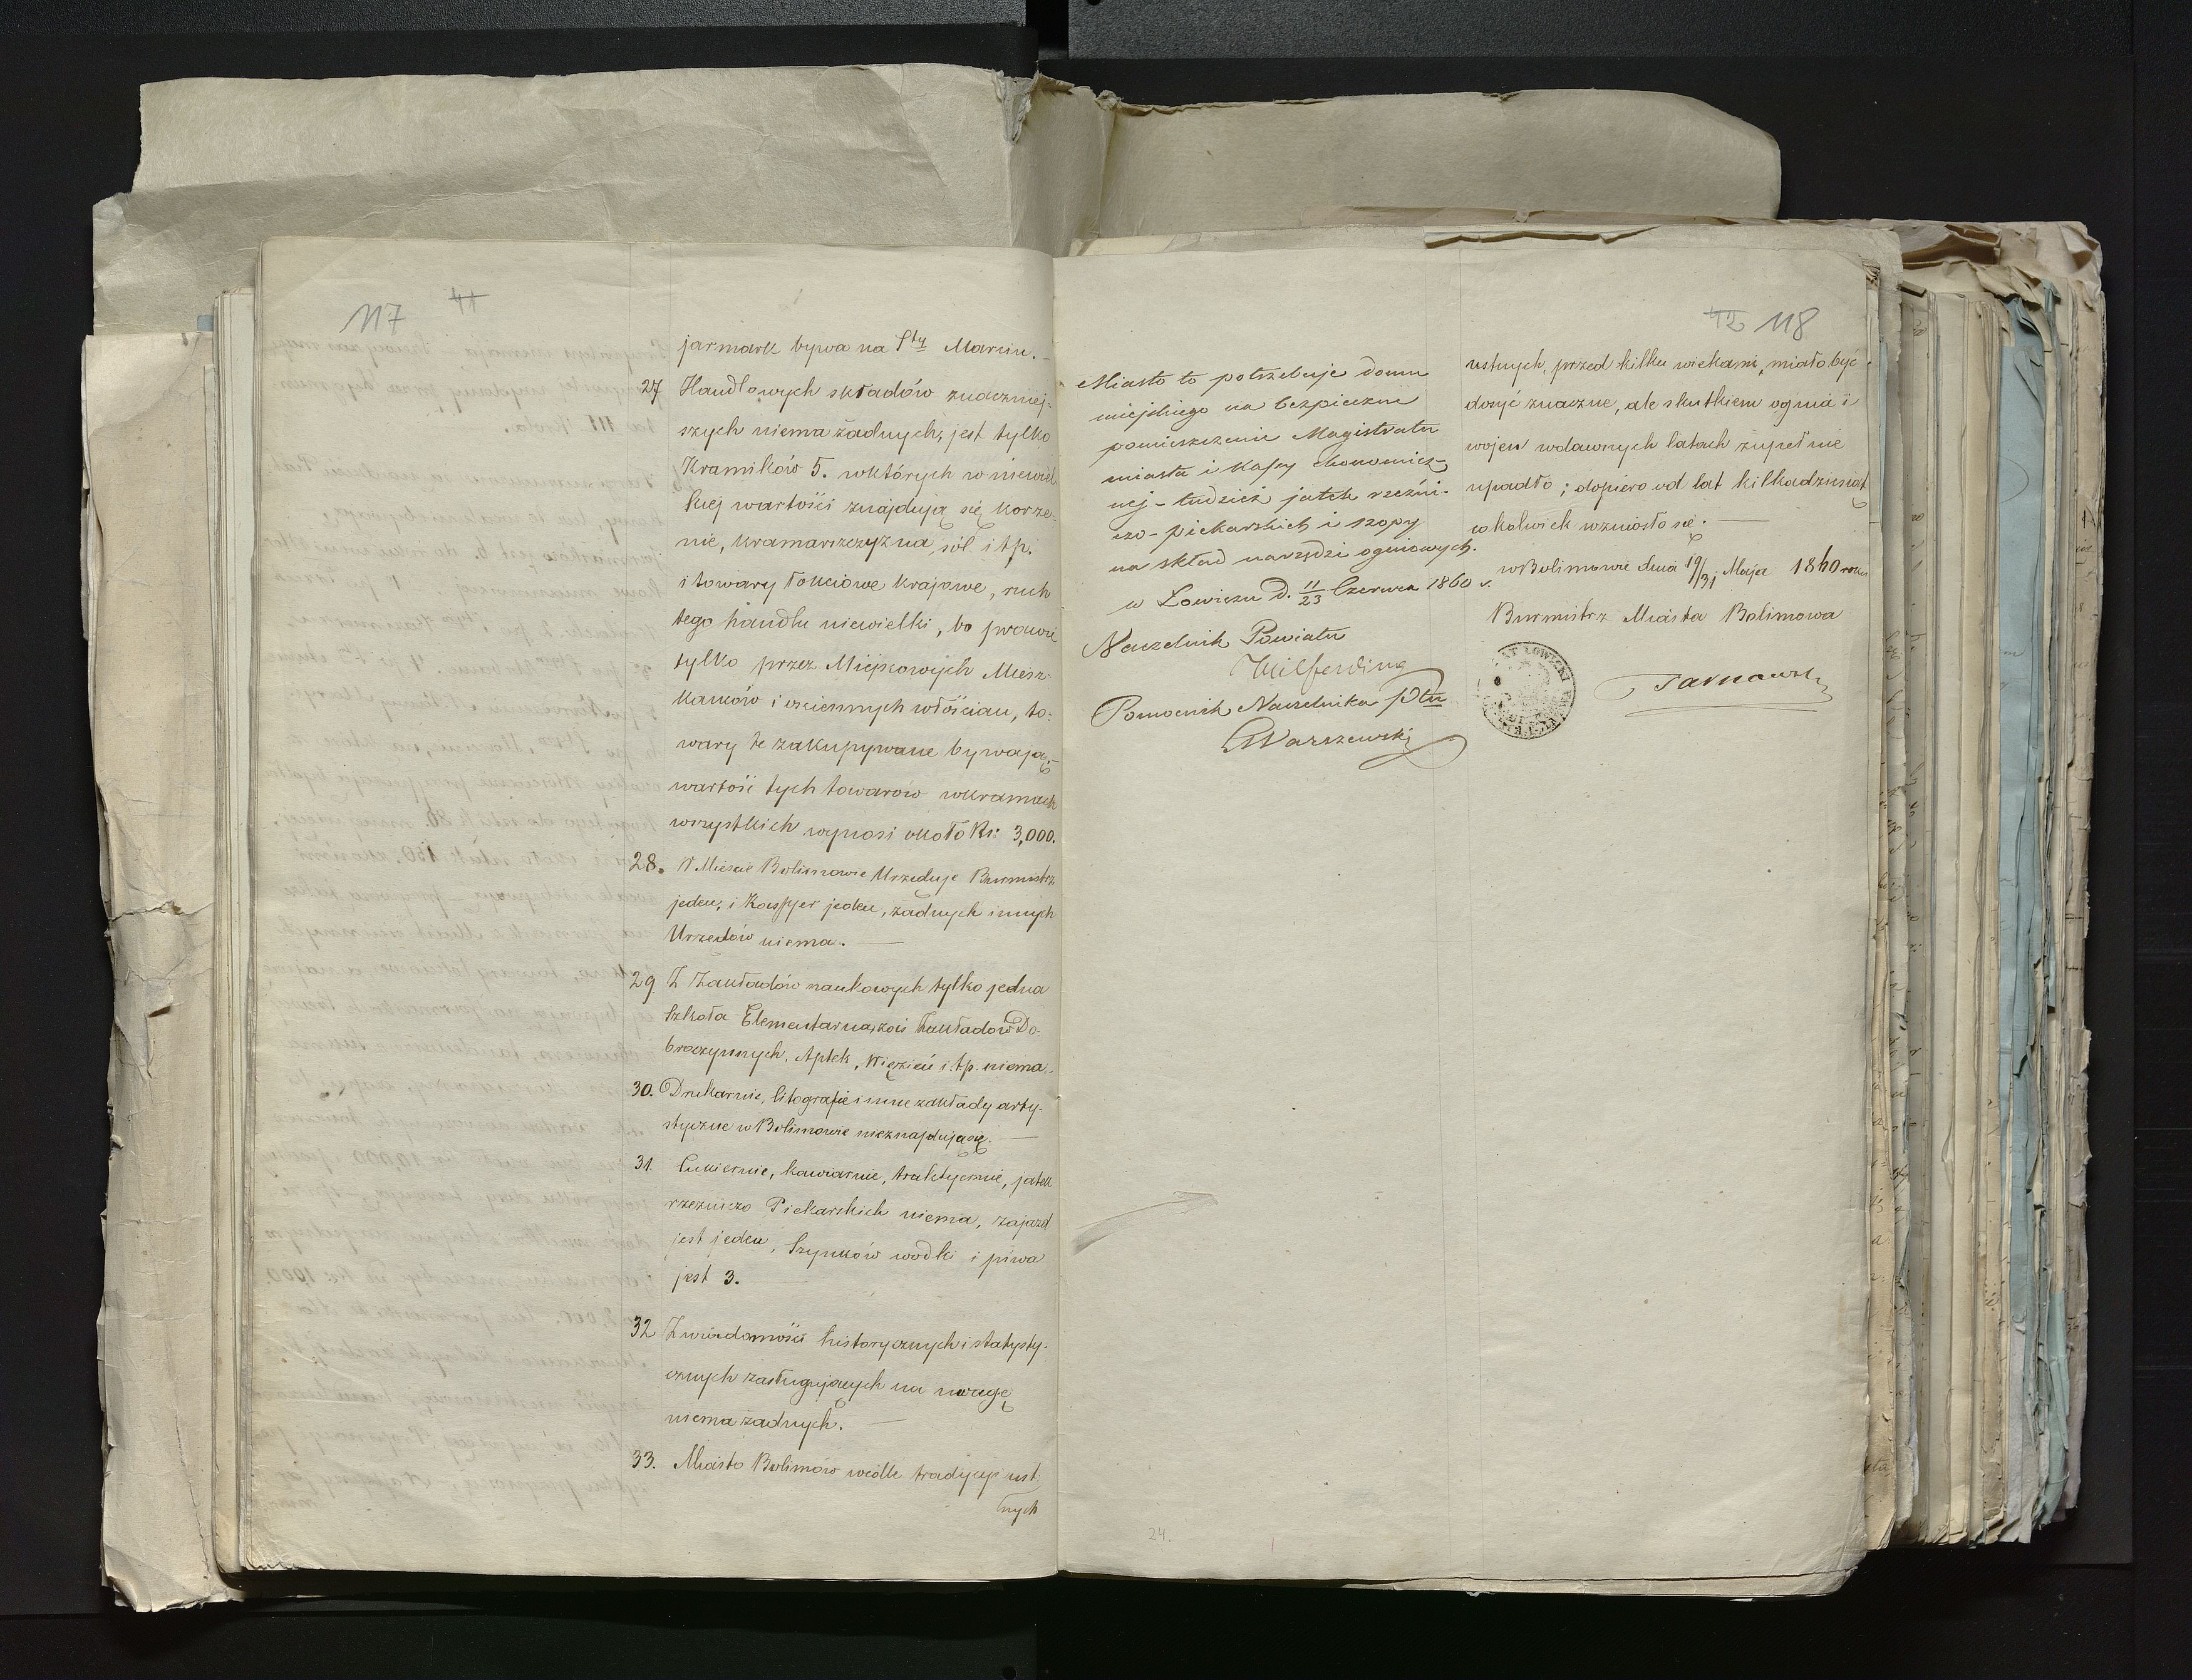 117 41
jarmark bywa na Sty Marcin. –
27 Handlowych składów znaczniej-
szych niema żadnych, jest tylko
Kramików 5. wktórych w niewiel
kiej wartości znajdują się korze-
nie, kramarszczyzna, sól i tp.
i towary łokciowe krajowe, ruch
tego handlu niewielki, bo prawie
tylko przez Miejscowych Miesz-
kańców i ościennych włościan, to-
wary te zakupywane bywają, –
wartość tych towarów wkramach
wszystkich wynosi około Rs: 3,000.
28. W Mieście Bolimowie Urzęduje Burmistrz
jeden, i Kassyer jeden, żadnych innych
Urzędów niema. —
29 Z Zakładów naukowych tylko jedna
Szkoła Elementarna, zaś Zakładów Do-
broczynnych, Aptek, Więzień i. tp. niema.
30. Drukarnie, litografie i inne zakłady arty-
styczne w Bolimowie nieznajdują się. —
31. Cukiernie, kawiarnie, traktyernie, jatek
rzeźniczo Piekarskich niema, zajazd
jest jeden, Szynków wodki i piwa
jest 3. —
32 Z wiadomości historycznych i statysty-
cznych zasługujących na uwagę
niema żadnych. —
33. Miasto Bolimów wedle tradycyi ust
nych
42 118
Miasto to potrzebuje domu
miejskiego na bezpieczne
pomieszczenie Magistratu
miasta i Kassy Ekonomicz-
nej – tudzież jatek rzeźni-
czo – piekarskich i szopy
na skład narzędzi ogniowych.
w Łowiczu d. 11/23 Czerwca 1860 r.
Naczelnik Powiatu
Hilferding
Pomocnik Naczelnika Ptu
Warszewski
ustnych, przed kilku wiekami, miało być
dosyć znaczne, ale skutkiem ognia i
wojen wdawnych latach zupełnie
upadło; dopiero od lat kilkadziesiąt
cokolwiek wzniosło się. —
w Bolimowie dnia 19/31 Maja 1860 roku
Burmistrz Miasta Bolimowa
Tarnawski
24.